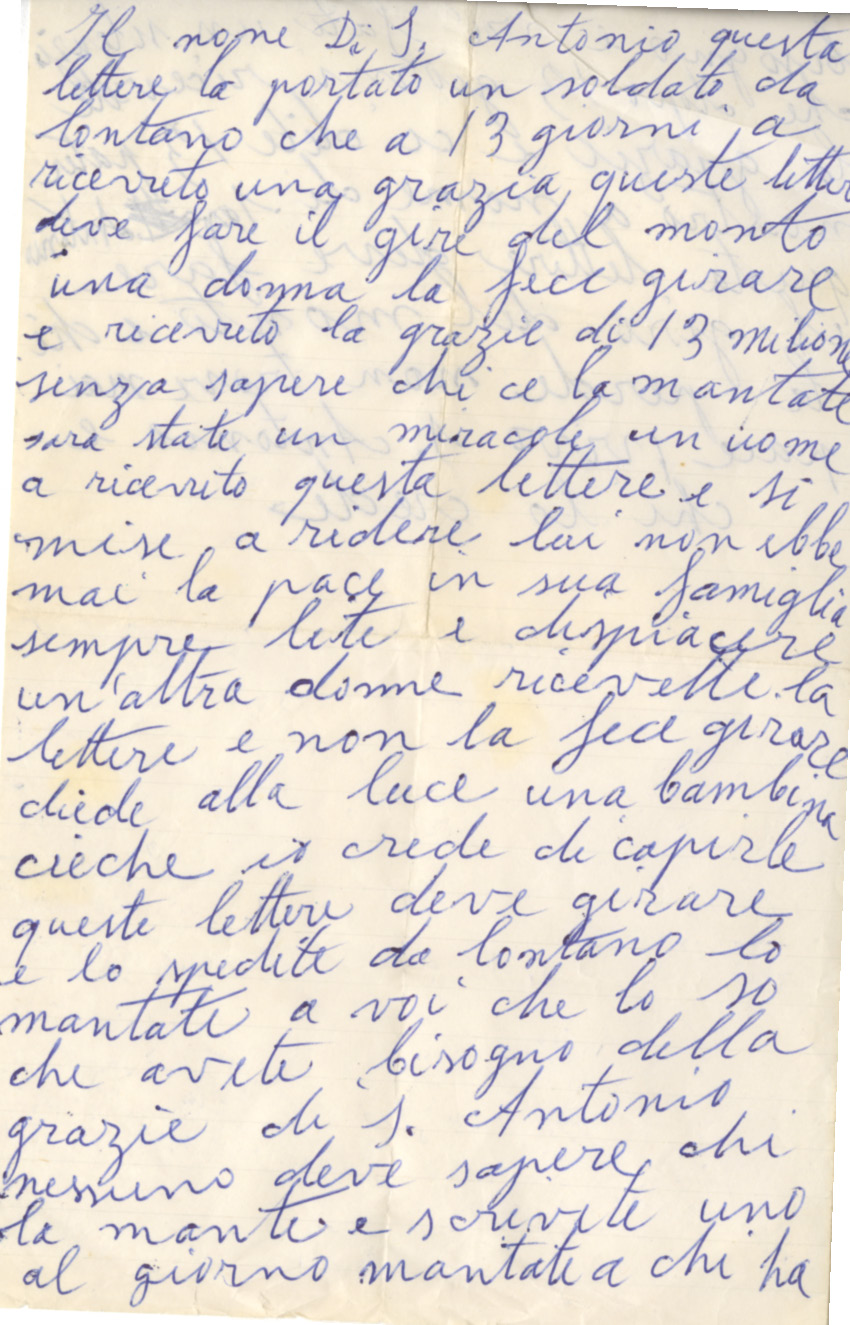 Il none Di S. Antonio questa
lettere la portato un soldato da
lontano che a 13 giorni a
ricevuto una grazia queste letter
deve fare il gire del monto
una donna la fece girare
e ricevuto la grazie di 13 milione
senza sapere chi ce la mantate
sara state un miracole un uome
a ricevuto questa lettere e si
mise a ridere lui non ebbe
mai la pace in sua famiglia
sempre lite e dispiacere
un'altra donne ricevette la
lettere e non la fece girare
diede alla luce una bambina
cieche io crede di capirle
queste lettere deve girare
e lo spedite da lontano lo
mantate a voi che lo so
che avete bisogno della
grazie di S. Antonio
nessuno deve sapere chi
la mante e scrivete uno
al giorno mantate a chi ha